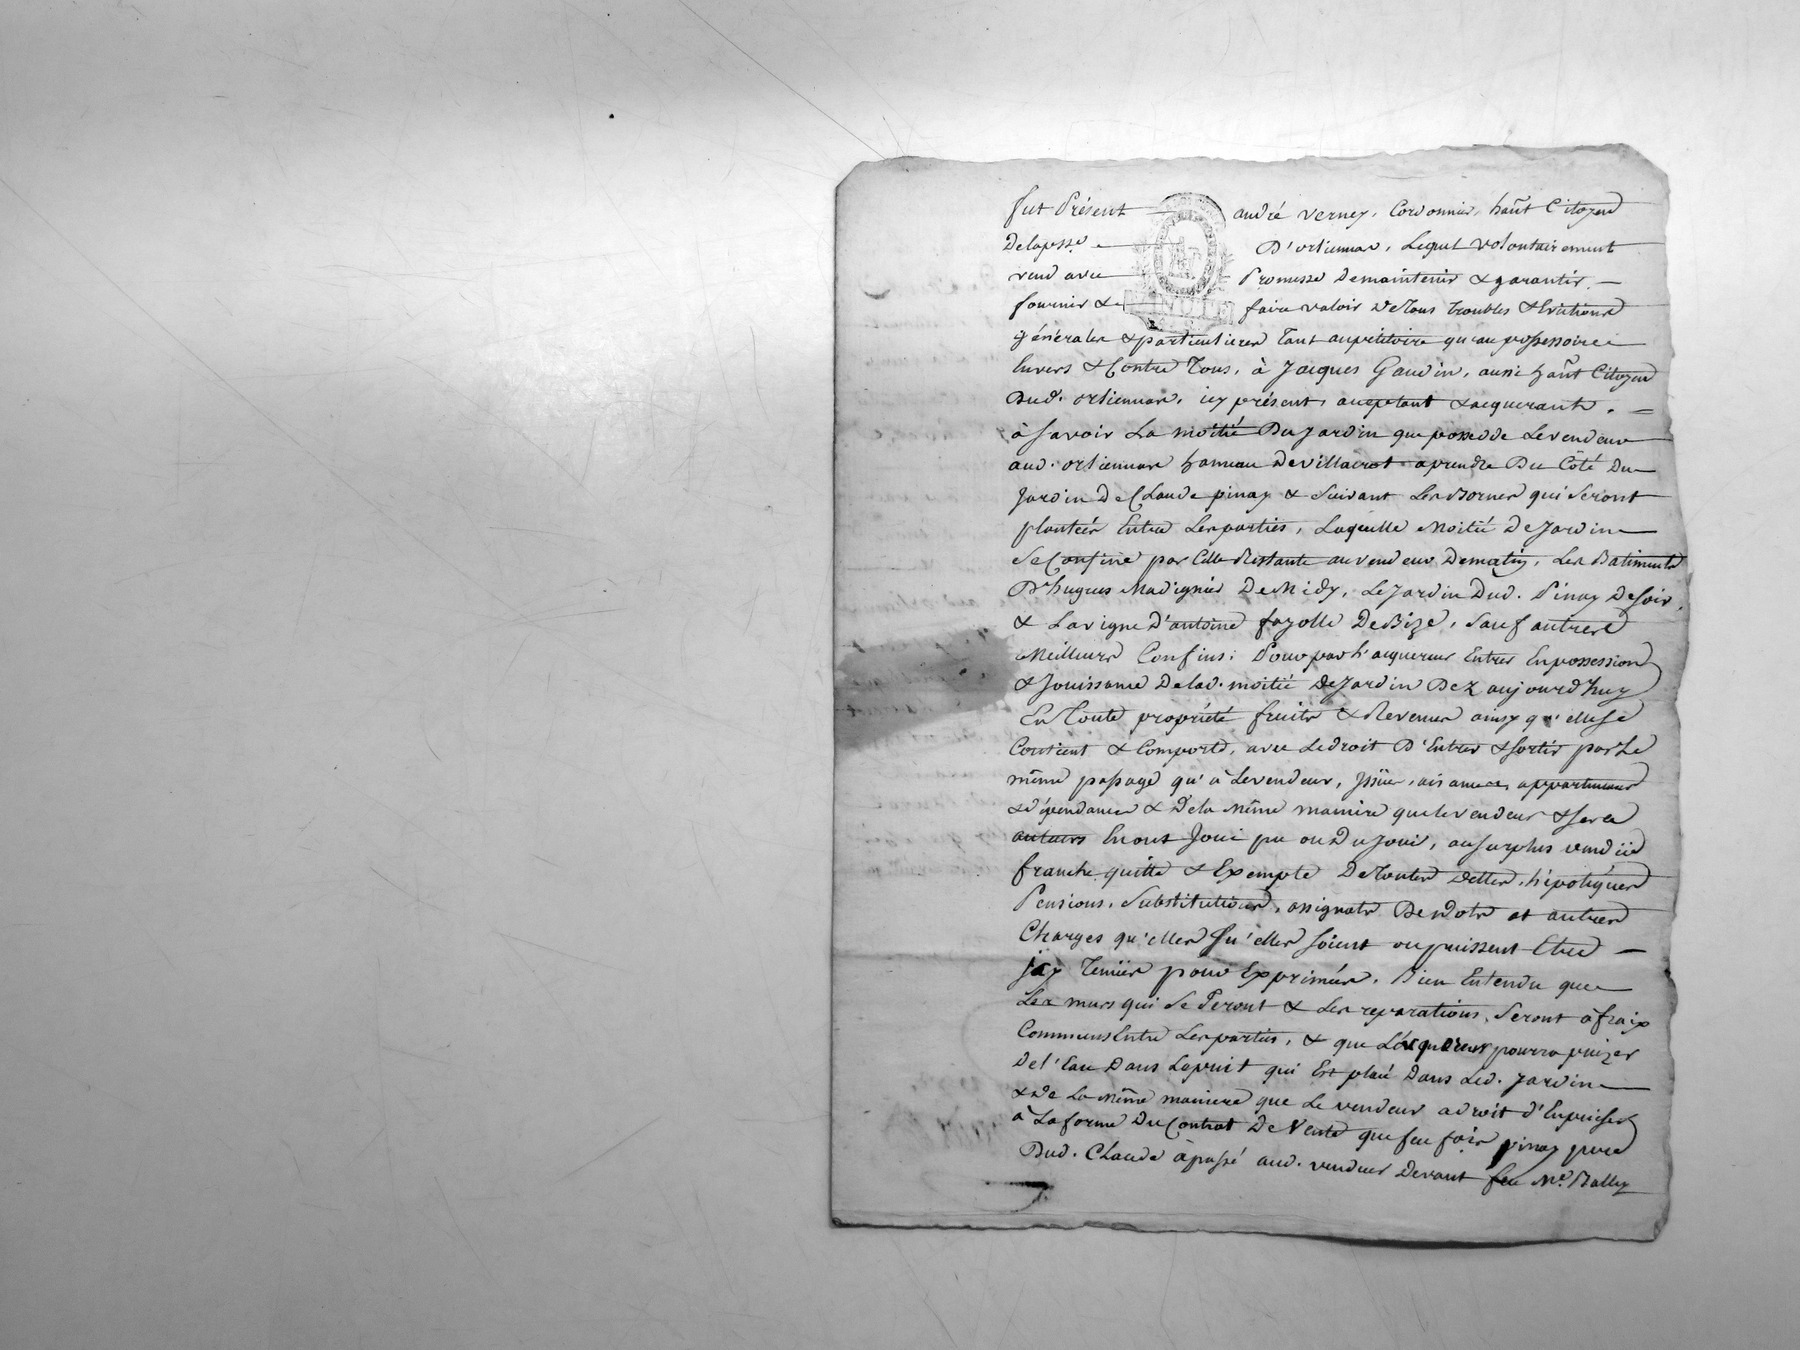 fut Présent andré verney, Cordonnier, hãnt Citoyen
De la pssẽ D'orliennas, Lequel volontairement
vend avec Promesse De maintenir & garantir
fournir & faire valoir De Tous troubles & Evictions
générales & particulieres Tant au petitoire qu'au possessoire
Envers & Contre Tous, à Jacques Gaudin, aussi hãnt Citoyen
Dud. orliennas, icy présent, aceptant & acquerant.
à Savoir La moitié Du Jardin que possedde Le vendeur
aud. orliennas hameau De villacrot a prendre Du Côté Du
Jardin De Claude pinay & Suivant Les Bornes qui Seront
plantées Entre Les parties, Laquelle Moitié De Jardin
Se Confine par Celle Restante au vendeur De matin, Les Batiments
D'hugues Madignier De Midy, Le Jardin Dud. Pinay De Soir,
& La vigne D'antoine fayolle De Bize, Sauf autres
Meilleurs Confins; Pour par L'acquereur Entrer En possession
& Jouissance De lad. moitié De Jardin Dez aujourd'huy
En Toute propriété fruits & Revenus ainsy qu'elle se
Contient & Comporte, avec Le droit D'Entrer & Sortir par Le
même passage qu'a Le vendeur, Jssües, aisances, appartenances
& dépendances & De la Même maniere que le vendeur & Ses
auteurs En ont Joui pu ou Du Jouir, au Surplus vendüe
franche quitte & Exempte De Toutes Dettes, hipotéques
Pensions, Substitutions, assignats De Dots et autres
Charges qu'elles qu'elles Soient ou puissent Etre
icy Tenües pour Exprimées. Bien Entendu que
Les murs qui Se Feront & Les reparations, Seront a fraix
Communs Entre Les parties, & que L'acquereur pourra puizer
De l'Eau Dans Le puit qui Est placé Dans Led. Jardin
& De La Même maniere que Le vendeur a droit d'En puiser
à La forme Du Contrat De Vente que feu pinay pere
Dud. Claude à passé aud. vendeur Devant feu Me. Bally